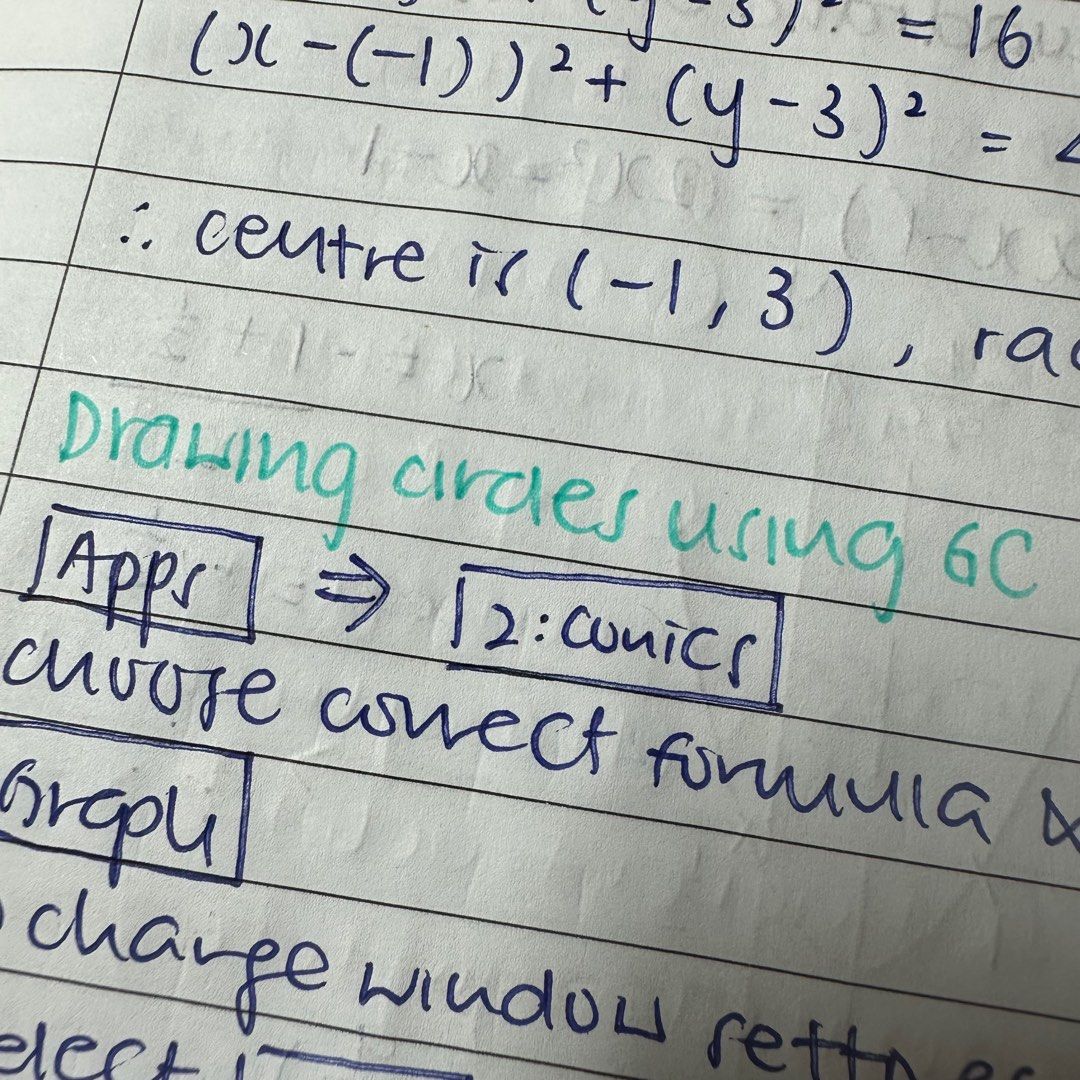 (y-3)² = 16
(x-(-1))² + (y-3)² =
∴ centre is (-1, 3),
Drawing circles using GC
Apps ⇒ 2: Conics
choose correct formula &
Graph
change window